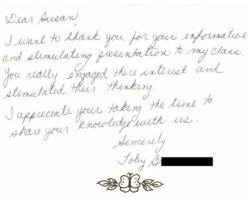 Dear Susan,
I want to thank you for your informative
and stimulating presentation to my class.
You really engaged there interest and
stimulated their thinking.
I appreciate your taking the time to
share your knowledge with us.
Sincerely
Toby B